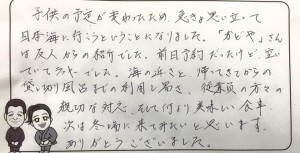 子供の予定が変わったため、急きょ思い立って
日本海に行こうということになりました。「かどや」さん
は友人からの紹介でした。前日予約だったけど、空い
ていてラッキーでした。海の近さと、帰ってきてからの
貸し切り風呂までの利用し易さ、従業員の方々の
親切な対応、そして何より美味しい食事。
次は冬場に来てみたいと思います。
ありがとうございました。